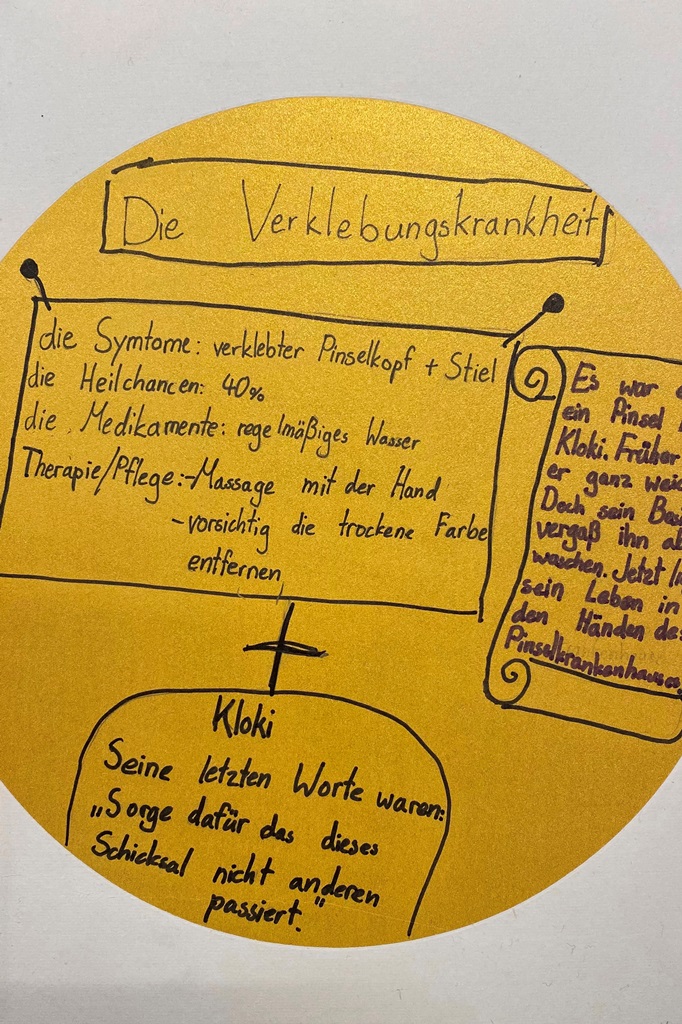 Die Verklebungskrankheit
die Symtome: verklebter Pinselkopf + Stiel
die Heilchancen: 40%
die Medikamente: regelmäßiges Wasser
Therapie/Pflege:-Massage mit der Hand
-vorsichtig die trockene Farbe
entfernen
Es war
ein Pinsel
Kloki. Früher
er ganz
Doch sein
vergaß ihn
waschen. Jetzt
sein Leben in
den Händen
Pinselkrankenhauses.
Kloki
Seine letzten Worte waren:
„Sorge dafür das dieses
Schicksal nicht anderen
passiert."